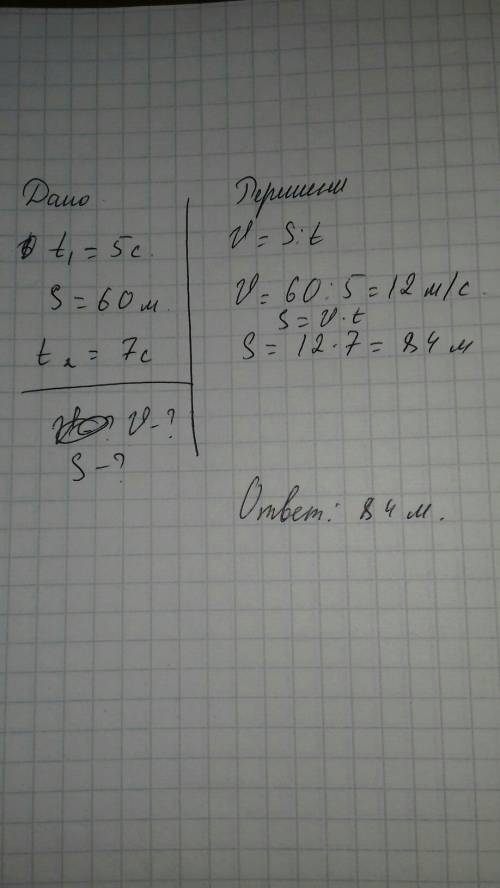 Дано
t₁ = 5с
S = 60 м
t₂ = 7с
v - ?
S - ?
v = S : t
v = 60 : 5 = 12 м/с
S = v · t
S = 12 · 7 = 84 м
Ответ: 84 м.